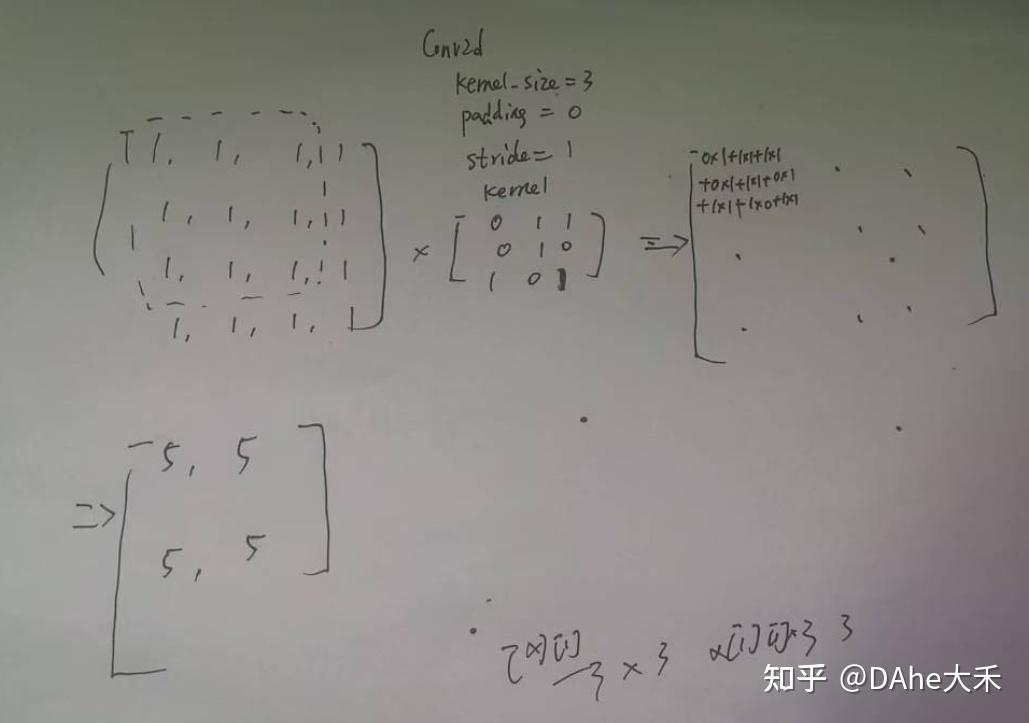 Conv2d
kernel_size = 3
padding = 0
stride = 1
kernel
1, 1, 1, 1
1, 1, 1, 1
1, 1, 1, 1
1, 1, 1, 1
×
0 1 1
0 1 0
1 0 1
=>
0×1+1×1+1×1
+0×1+1×1+0×1
+1×1+1×0+1×1
=>
5, 5
5, 5
3 × 3
知乎 @DAhe大禾